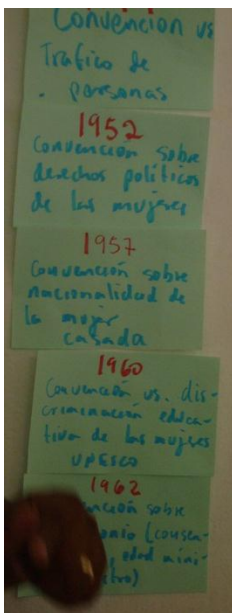 Convención vs
Trafico de
. personas
1952
Convención sobre
derechos políticos
de las mujeres
1957
Convención sobre
nacionalidad de
la mujer
casada
1960
Convención vs. dis-
criminación educa-
tiva de las mujeres
UNESCO
1962
sobre
onio (consen-
edad mini-
tro)